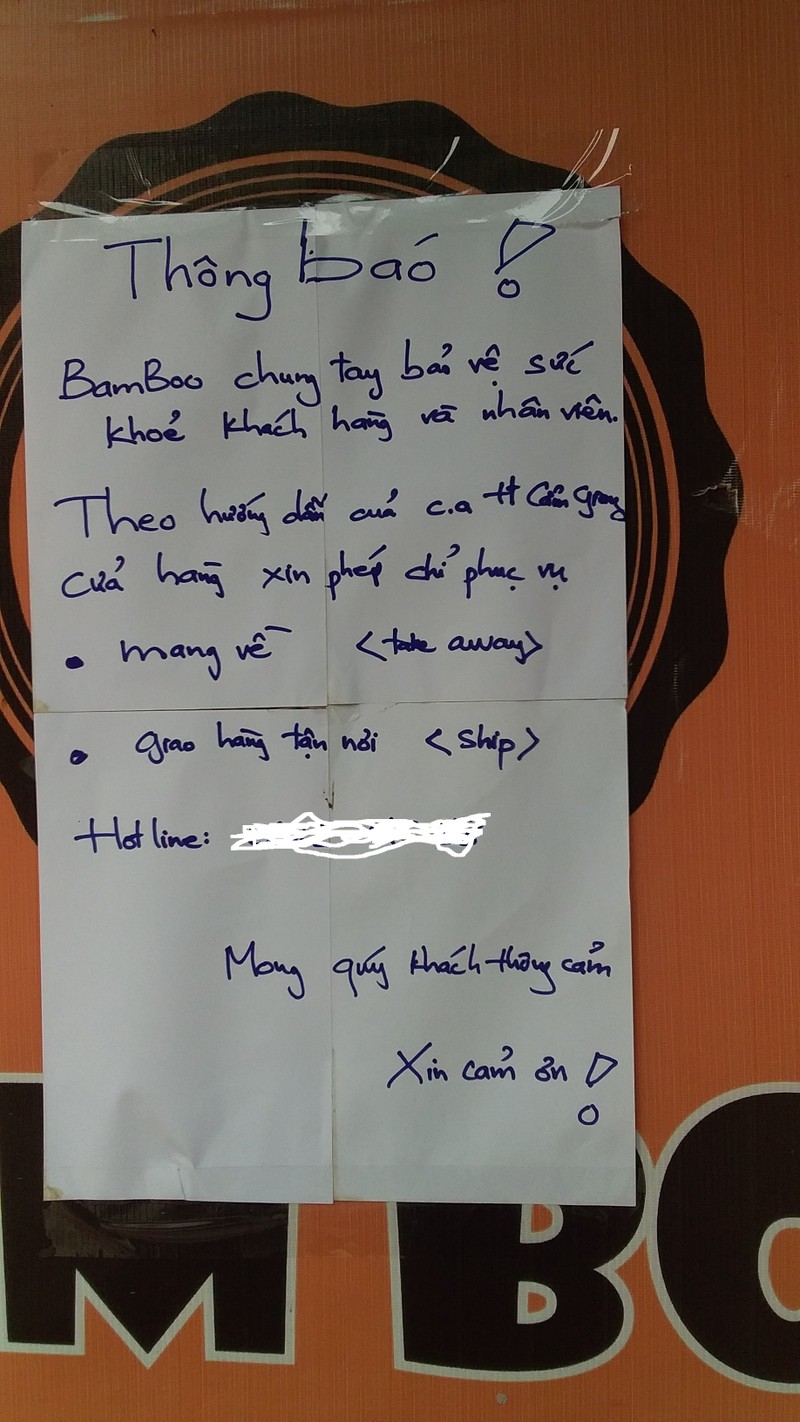 Thông báo !
BamBoo chung tay bảo vệ sức
khoẻ khách hàng và nhân viên.
Theo hướng dẫn của c.a tt Cẩm Giàng
cửa hàng xin phép chỉ phục vụ
• mang về <take away>
• giao hàng tận nơi <ship>
Hotline:
Mong quý khách thông cảm
Xin cảm ơn !
M BO